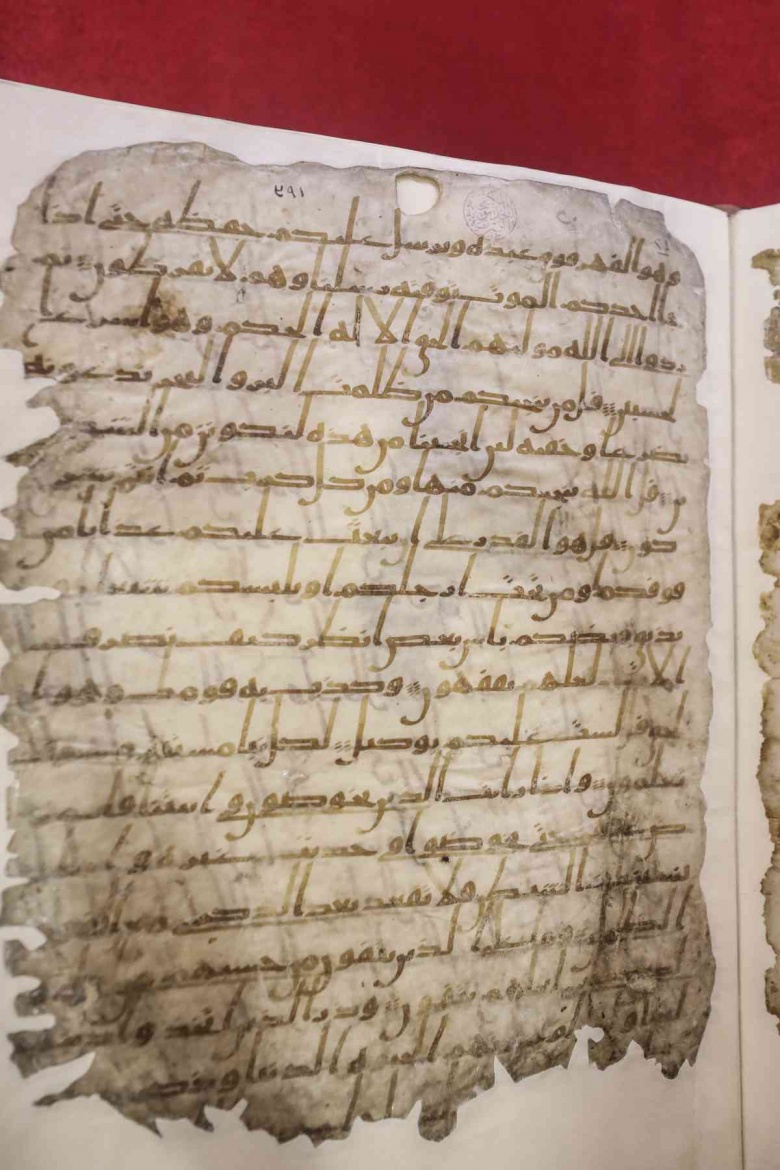 ٣٩١
وهو القهر فوق عبده ويرسل عليكم حفظه حتى اذا
جا احدكم الموت توفته رسلنا وهم لا يفرطون ثم
ردوا الى الله موليهم الحق الا له الحكم وهو اسرع ا
لحسبين قل من ينجيكم من ظلمت البر والبحر تدعونه
تضرعا وخفيه لئن انجينا من هذه لنكونن من الشكر
ين قل الله ينجيكم منها ومن كل كرب ثم انتم تشر
كون قل هو القدر على ان يبعث عليكم عذابا من
فوقكم او من تحت ارجلكم او يلبسكم شيعا و
يذيق بعضكم باس بعض انظر كيف نصرف
الايت لعلهم يفقهون وكذب به قومك وهو ا
لحق قل لست عليكم بوكيل لكل نبا مستقر وسوف
تعلمون واذا رايت الذين يخوضون في ايتنا فاعر
ض عنهم حتى يخوضوا في حديث غيره وا
ينسينك الشيطن فلا تقعد بعد الذكرى مع القوم
الظلمين وما على الذين يتقون من حسبهم من
ولكن ذكرى لعلهم يتقون وذر الذين اتخذوا
لعبا ولهوا وغرتهم الحيوه الدنيا وذكر